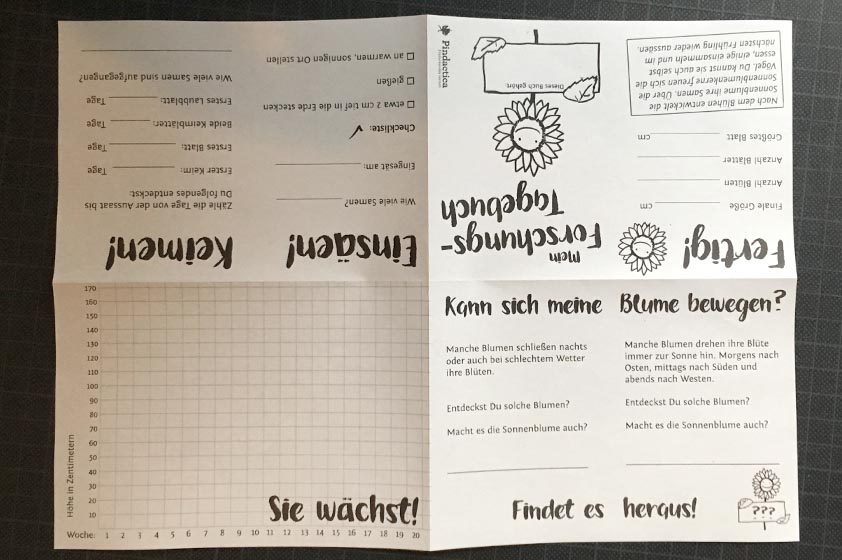 Mein
Forschungs-
Tagebuch
Dieses Buch gehört:
Pindactica
Einsäen!
Wie viele Samen?
Eingesät am:
Checkliste:
etwa 2 cm tief in die Erde stecken
gießen
an warmen, sonnigen Ort stellen
Keimen!
Zähle die Tage von der Aussaat bis
Du folgendes entdeckst:
Erster Keim: Tage
Erstes Blatt: Tage
Beide Keimblätter: Tage
Erstes Laubblatt: Tage
Wie viele Samen sind aufgegangen?
Höhe in Zentimetern
170
160
150
140
130
120
110
100
90
80
70
60
50
40
30
20
10
Sie wächst!
Woche: 1 2 3 4 5 6 7 8 9 10 11 12 13 14 15 16 17 18 19 20
Kann sich meine Blume bewegen?
Manche Blumen schließen nachts
oder auch bei schlechtem Wetter
ihre Blüten.
Entdeckst Du solche Blumen?
Macht es die Sonnenblume auch?
Manche Blumen drehen ihre Blüte
immer zur Sonne hin. Morgens nach
Osten, mittags nach Süden und
abends nach Westen.
Entdeckst Du solche Blumen?
Macht es die Sonnenblume auch?
Findet es heraus!
???
Fertig!
Finale Größe cm
Anzahl Blüten
Anzahl Blätter
Größtes Blatt cm
Nach dem Blühen entwickelt die
Sonnenblume ihre Samen. Über die
Sonnenblumenkerne freuen sich die
Vögel. Du kannst sie auch selbst
essen, einige einsammeln und im
nächsten Frühling wieder aussäen.